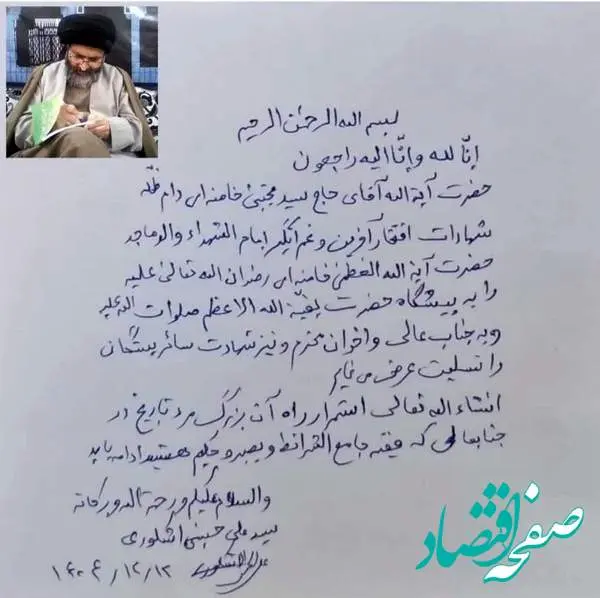 بسم الله الرحمن الرحیم
إنّا لله وإنّا إلیه راجعون
حضرت آیة الله آقای حاج سید مجتبی خامنه‌ای دام ظلّه
شهادت افتخارآفرین و غم‌انگیز امام الشهداء والد ماجد
حضرت آیة الله العظمی خامنه‌ای رضوان الله تعالی علیه
را به پیشگاه حضرت بقیّة الله الاعظم صلوات الله علیه
و به جناب عالی و اخوان محترم و نیز شهادت سائر بستگان
را تسلیت عرض می‌نمایم
انشاء الله تعالی استمرار راه آن بزرگ مرد تاریخ در
جنابعالی که فقیه جامع الشرائط و بصیر و حکیم هستید ادامه یابد
والسلام علیکم ورحمة الله وبرکاته
سید علی حسینی اشکوری
۱۴۰۴/۱۲/۱۲
صفحه اقتصاد